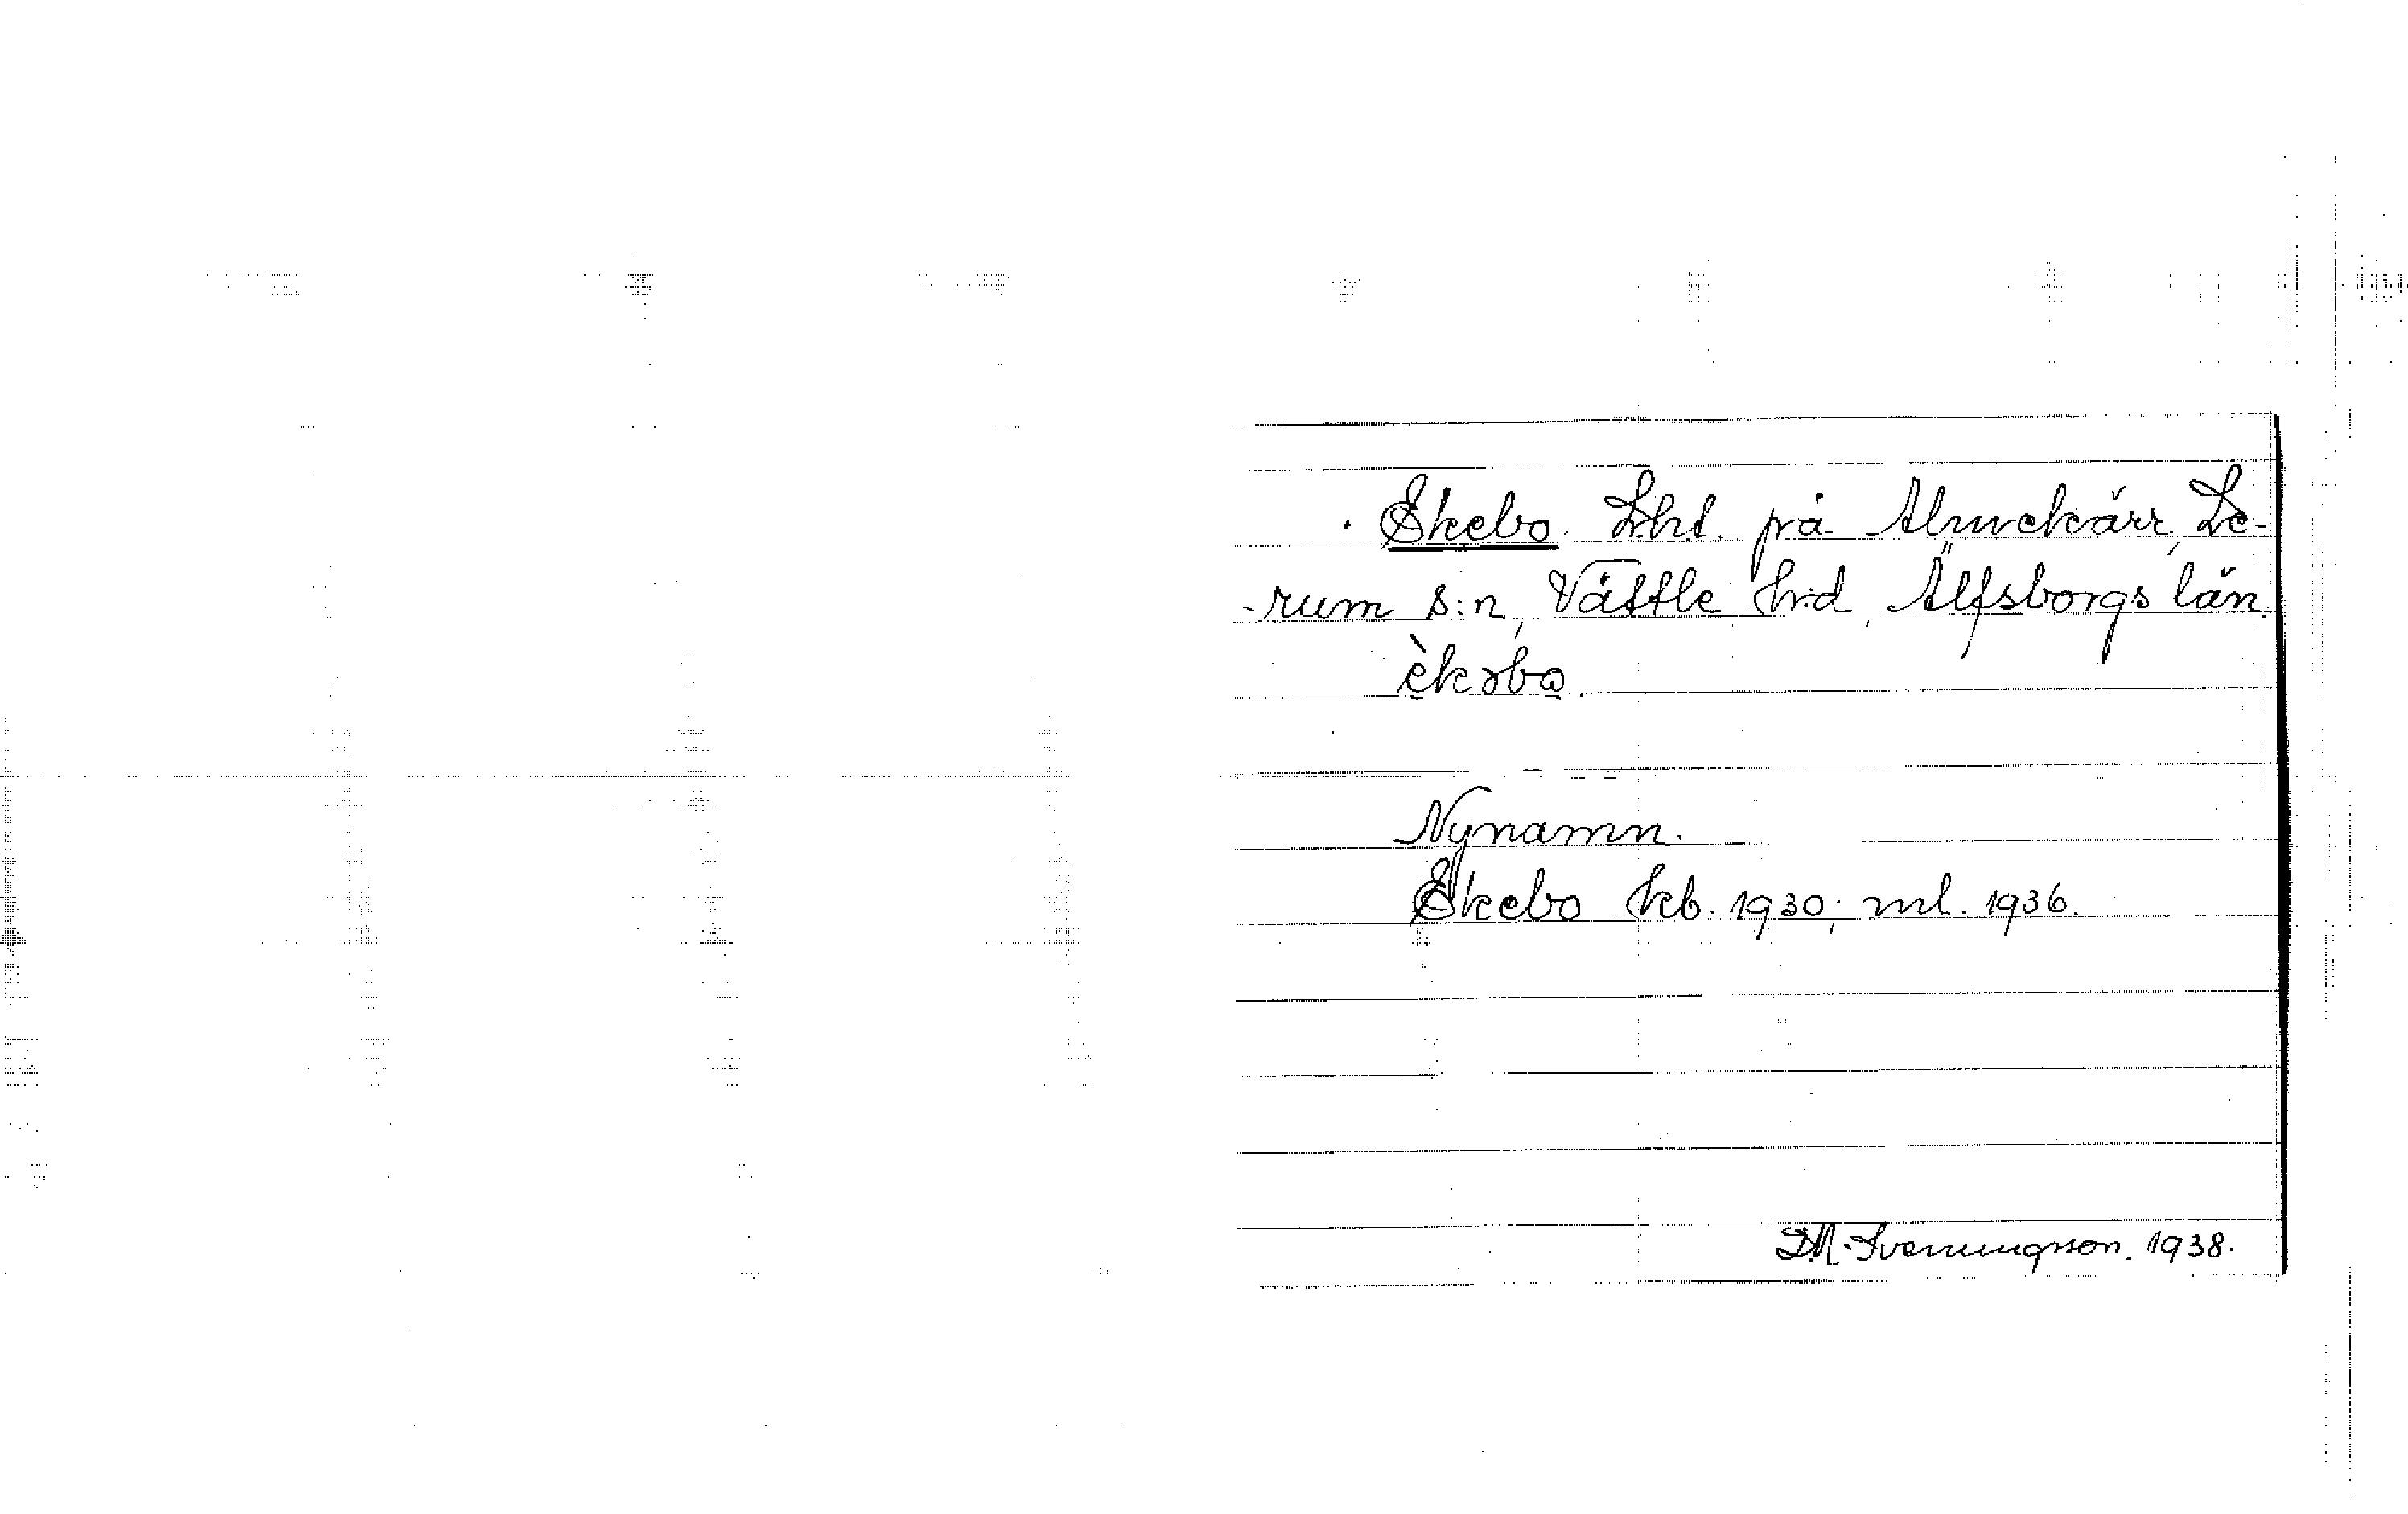 Ekebo. Lht. på Almekärr, Le-
-rum s:n, Vättle h:d, Älfsborgs län.
èkəbo.
Nynamn.
Ekebo kb. 1930; ml. 1936.
D.M. Svenungsson. 1938.